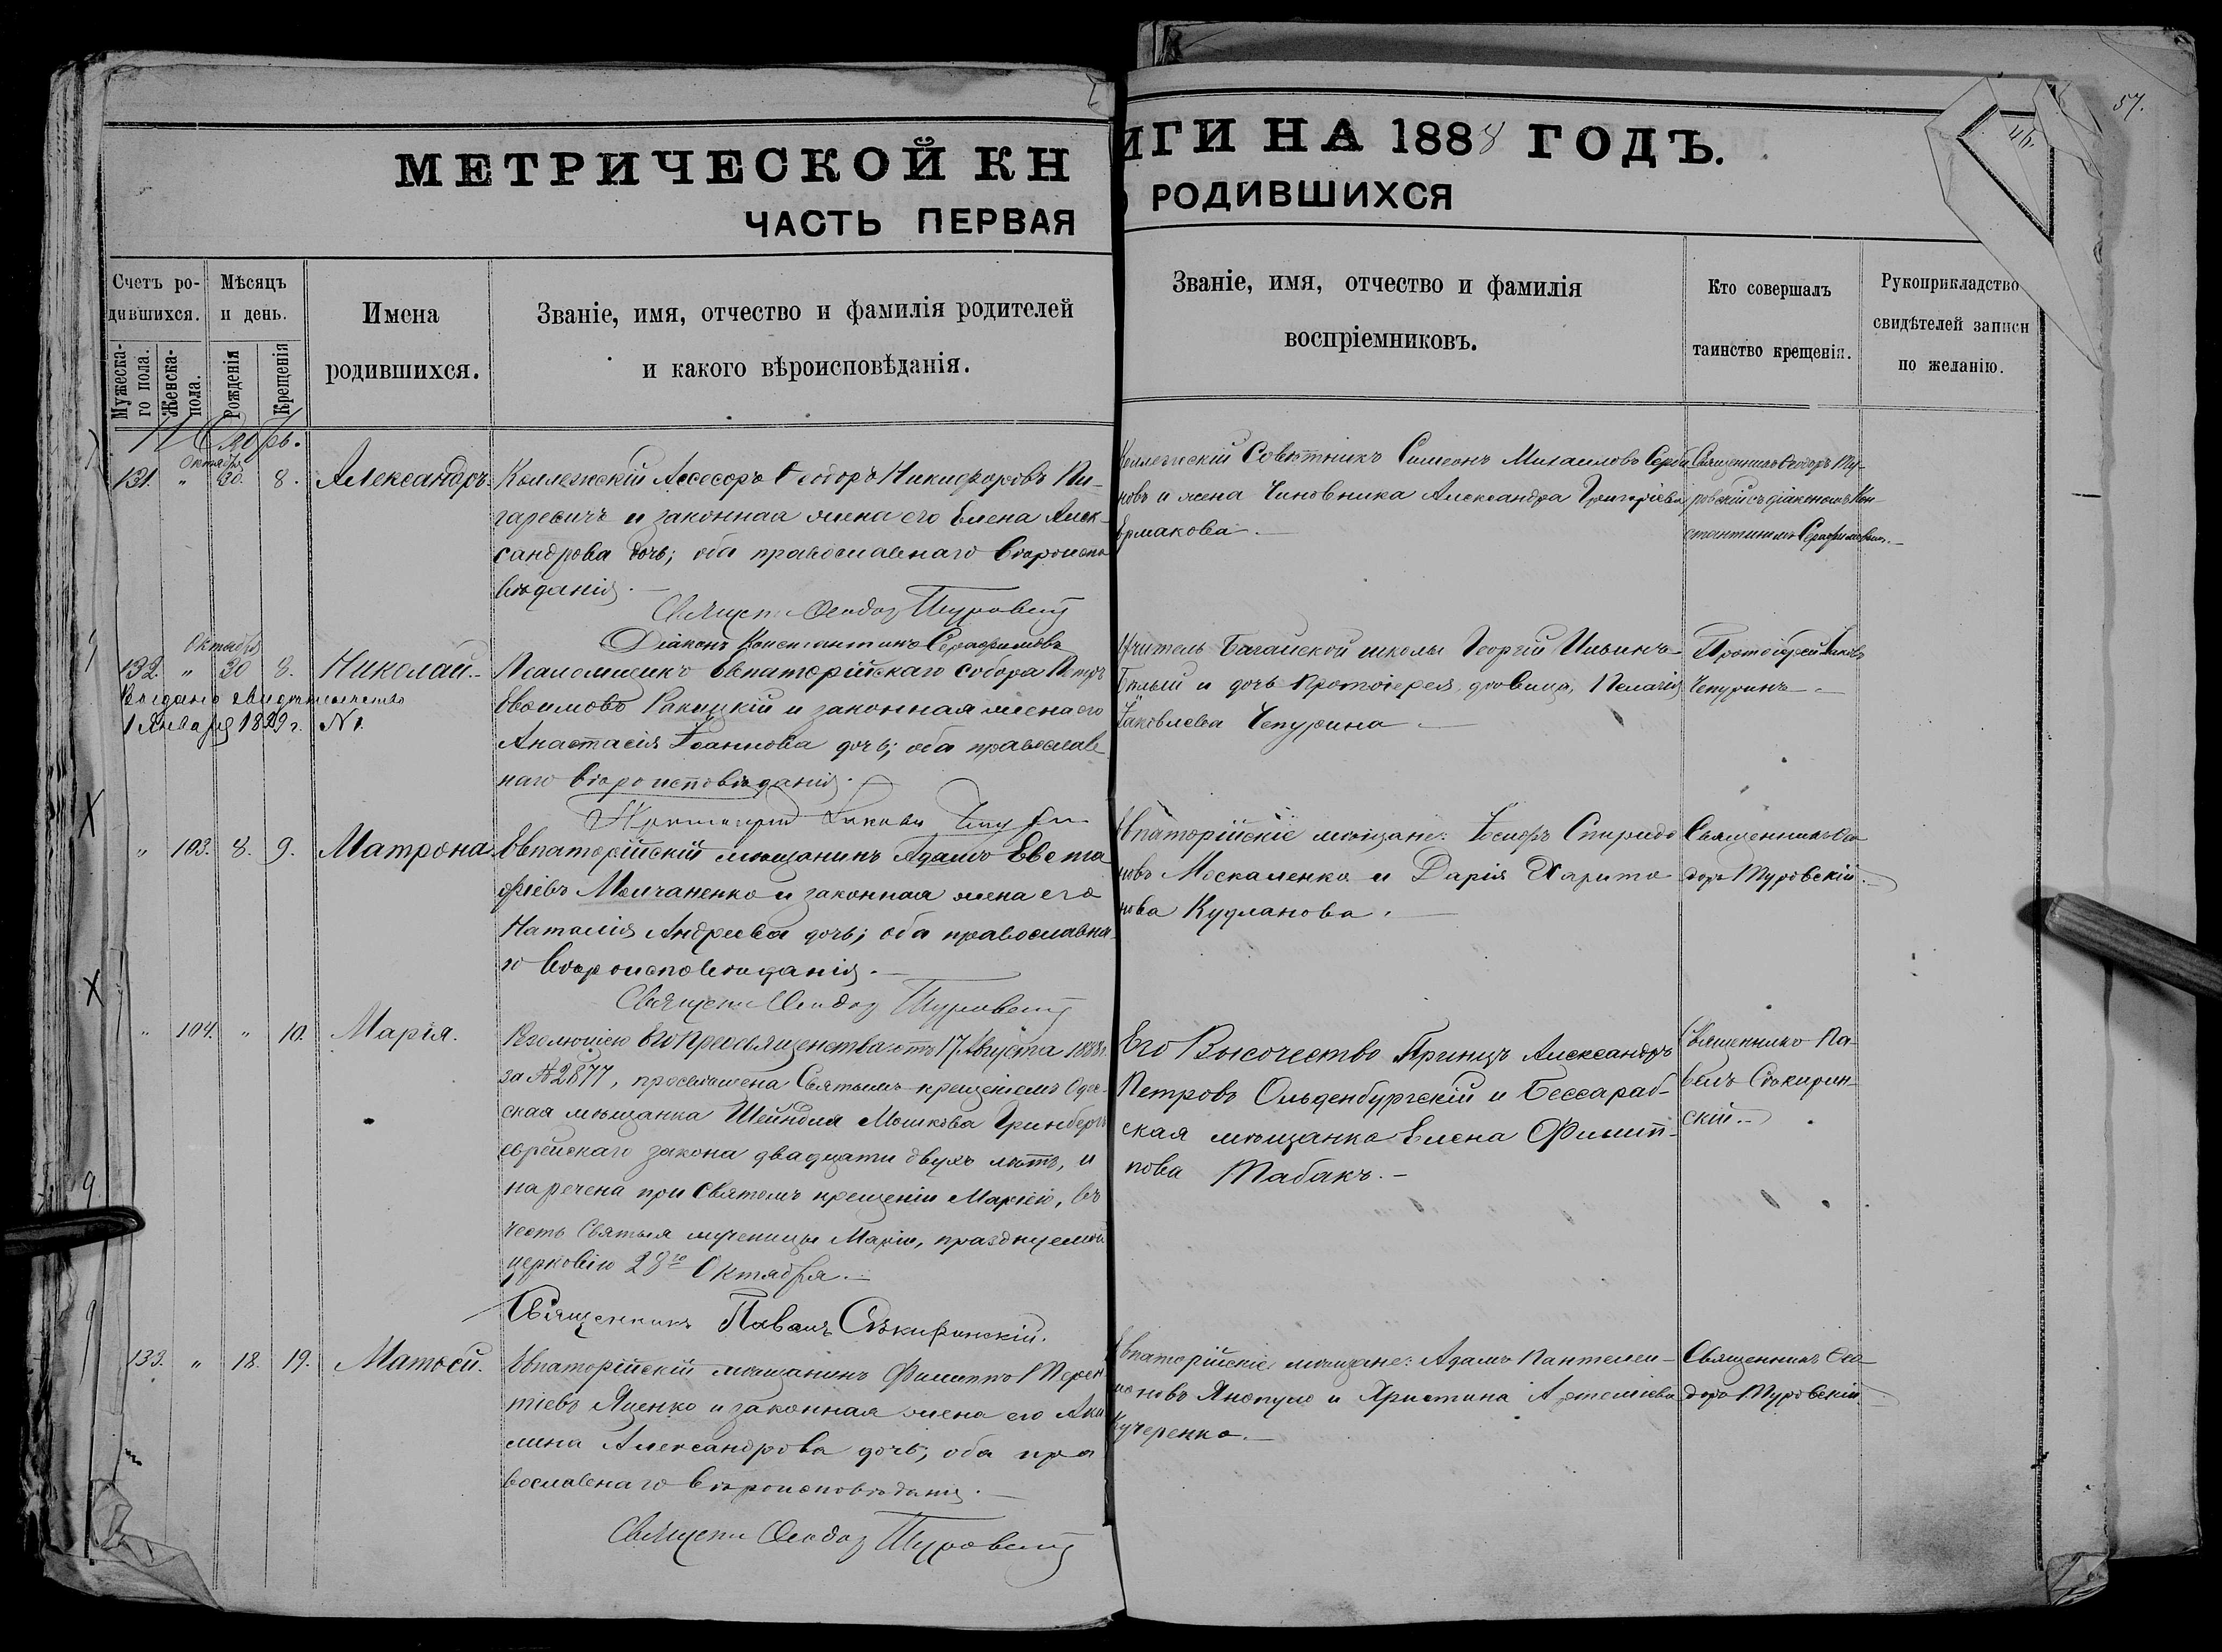 57.
46.
МЕТРИЧЕСКОЙ КН
ЧАСТЬ ПЕРВАЯ
ИГИ НА 1888 ГОДЪ.
РОДИВШИХСЯ
Счетъ ро-
дившихся.
Мужеска-
го пола.
Женска-
пола.
Мѣсяцъ
и день.
Рожденія
Крещенія
Имена
родившихся.
Званіе, имя, отчество и фамилія родителей
и какого вѣроисповѣданія.
Званіе, имя, отчество и фамилія
воспріемниковъ.
Кто совершалъ
таинство крещенія.
Рукоприкладство
свидѣтелей записи
по желанію.
Октября
131. " 30. 8. Александръ.
Коллежскій Ассесоръ Ѳеодоръ Никифоровъ Пи-
гаревичъ и законная жена его Елена Алек-
сандрова дочь; оба православнаго вѣроиспо
вѣданія.
Священ. Ѳеодоръ Туровскій
Діаконъ Константинъ Серафимовъ
Коллежскій Совѣтникъ Симеонъ Михаиловъ Серби
новъ и жена Чиновника Александра Григоріева
Ермакова.
Священникъ Ѳеодоръ Ту-
ровскій съ діакономъ Кон-
стантиномъ Серафимовымъ.
Октября
132. " 30 8. Николай.
Выдано свидѣтельство
1 Января 1889 г. № 1.
Псаломщикъ Евпаторійскаго собора Петръ
Евѳимовъ Ракицкій и законная жена его
Анастасія Іоаннова дочь; оба православ
наго вѣроисповѣданія.
Протоіерей Іаковъ Чепурин
Учитель Багайской школы Георгій Ильинъ
Бѣлый и дочь Протоіерея, дѣвица, Пелагія
Іаковлева Чепурина
Протоіерей Іаковъ
Чепуринъ
" 103. 8. 9. Матрона.
Евпаторійскій мѣщанинъ Адамъ Евста
фіевъ Молчаненко и законная жена его
Наталія Андреева дочь; оба православна
го вѣроисповѣданія.
Священ. Ѳеодоръ Туровскій
Евпаторійскіе мѣщане: Іосифъ Спиридо
новъ Москаленко и Дарія Харито
нова Кудланова.
Священникъ Ѳео
доръ Туровскій.
" 104. " 10. Марія.
Резолюціею Его Преосвященства отъ 17 Августа 1888 г.
за № 2877, просвѣщена Святымъ крещеніемъ Одес-
ская мѣщанка Шейндля Мошкова Гринбергъ
еврейскаго закона двадцати двухъ лѣтъ, и
наречена при Святомъ крещеніи Маріею, въ
честь Святыя мученицы Маріи, празднуемой
церковію 29го Октября.
Священникъ Павелъ Сѣкиринскій.
Его Высочество Принцъ Александръ
Петровъ Ольденбургскій и Бессараб-
ская мѣщанка Елена Филип-
пова Табакъ.
Священникъ Па-
велъ Сѣкирин-
скій.
133. " 18. 19. Матѳей.
Евпаторійскій мѣщанинъ Филиппъ Терен
тіевъ Яценко и законная жена его Аки
лина Александрова дочь; оба пра
вославнаго вѣроисповѣданія.
Священ. Ѳеодоръ Туровскій
Евпаторійскіе мѣщане: Адамъ Пантелеи-
моновъ Янопуло и Христина Артеміева
Кучеренко.
Священникъ Ѳео
доръ Туровскій.